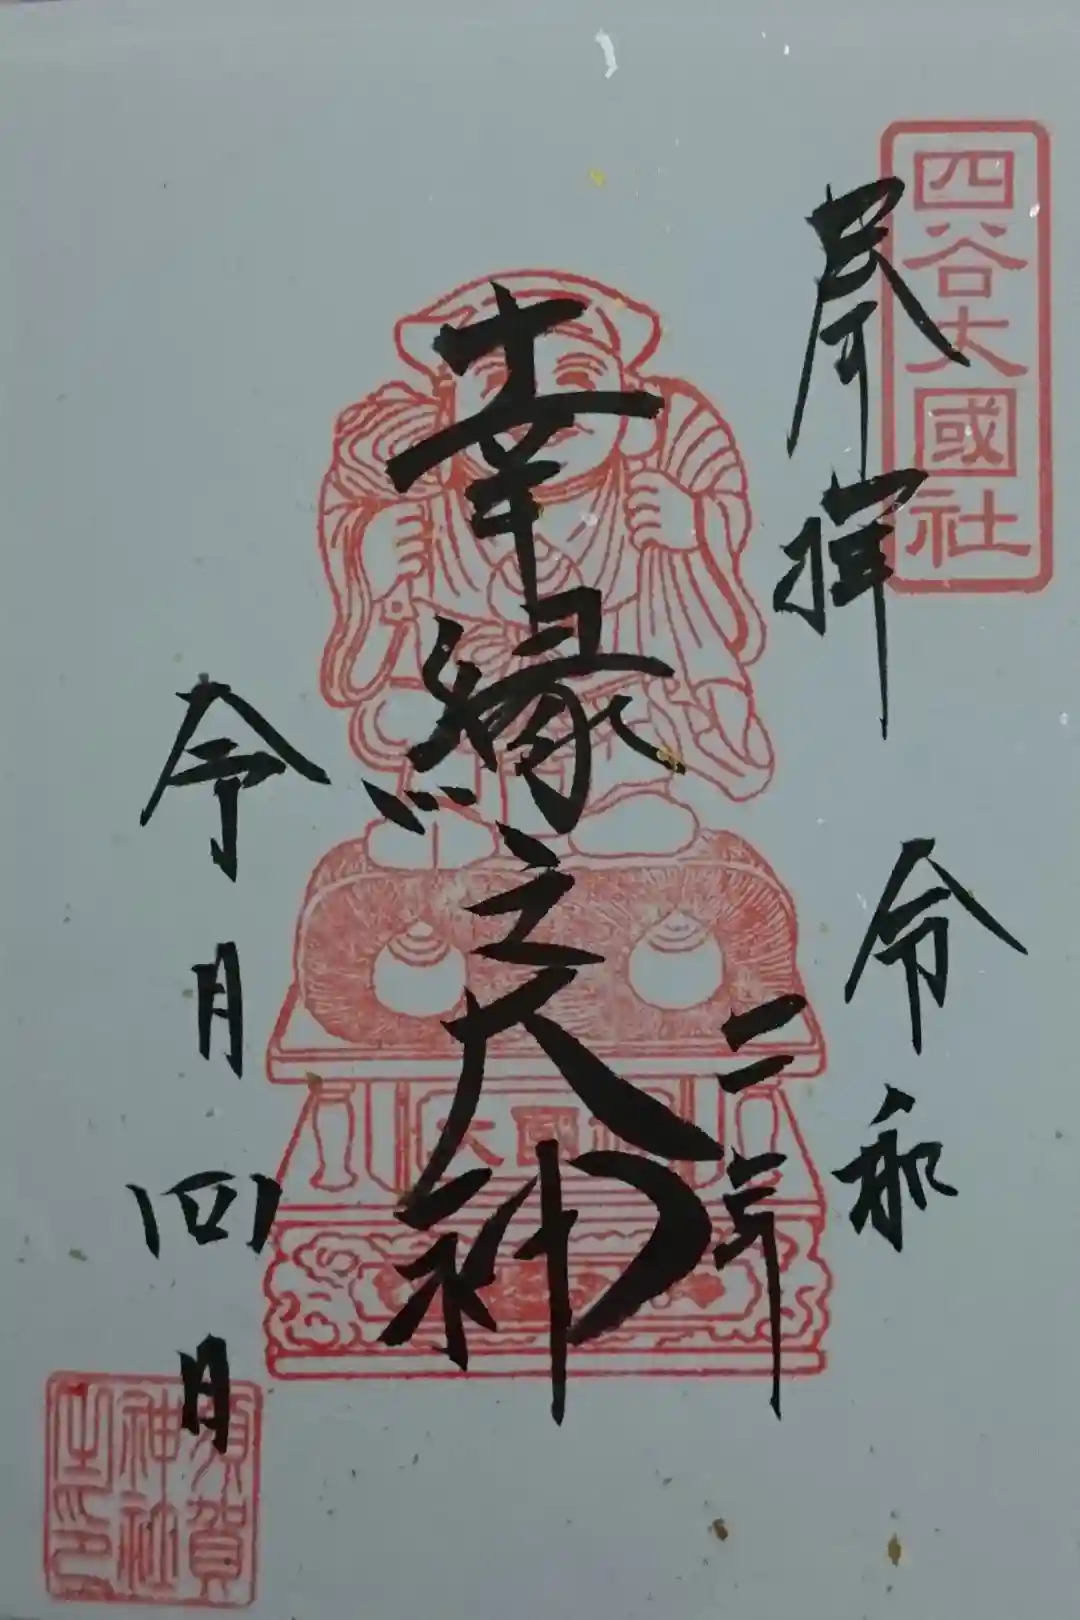 四谷大國社
奉拝
令和
二年
幸縁之大神
大國社
令月四日
須賀
神社
之印